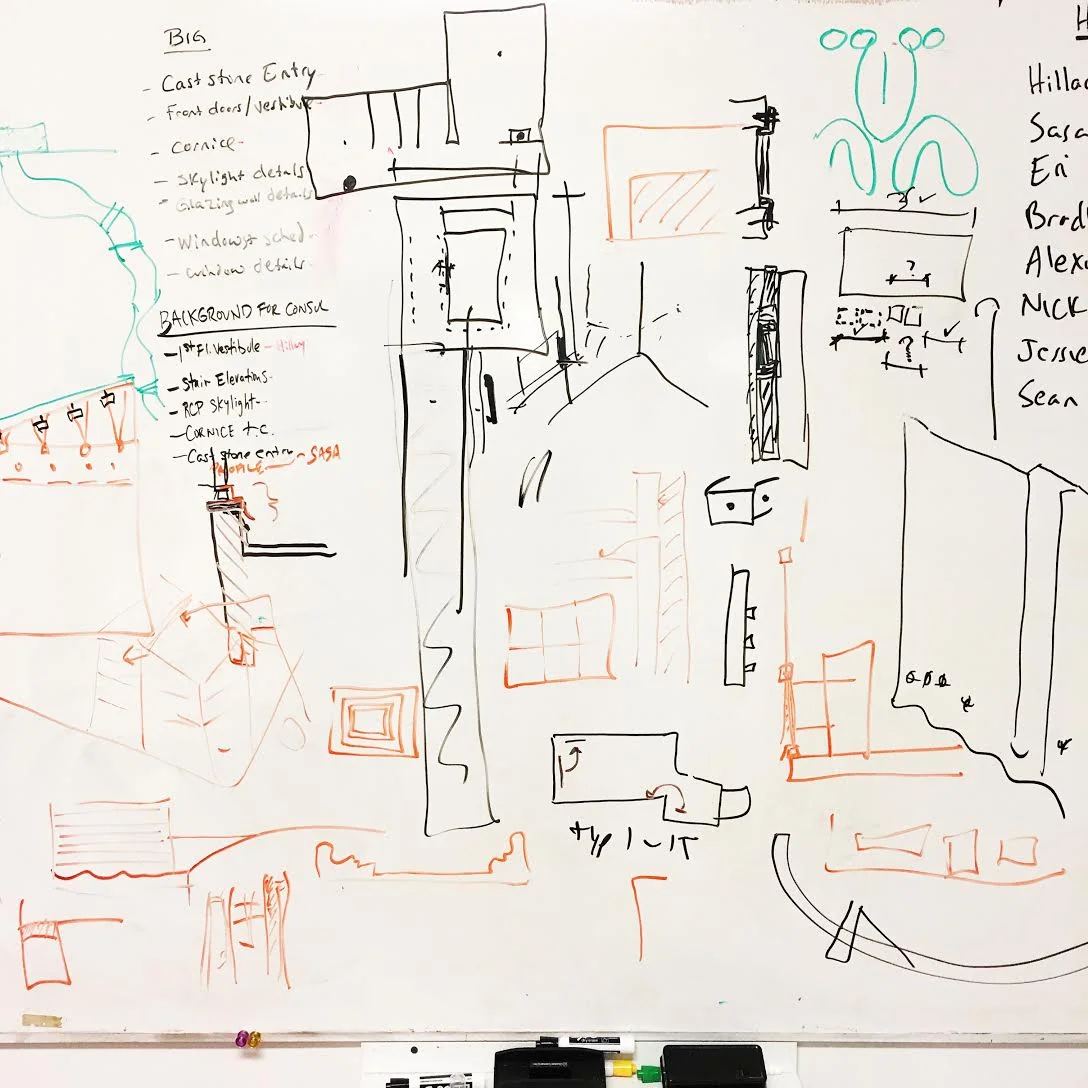 BIG
- Cast stone Entry
- Front doors/vestibule
- Cornice
- Skylight details
- Glazing wall details
- Windows sched.
- window details
BACKGROUND FOR CONSUL
- 1st Fl. Vestibule - Hillary
- Stair Elevations
- RCP Skylight
- CORNICE T.C.
- Cast stone entry
PROFILE - SASA
?
?
typ
H
Hillar
Sasa
Eri
Brad
Alexa
NICK
Jesse
Sean